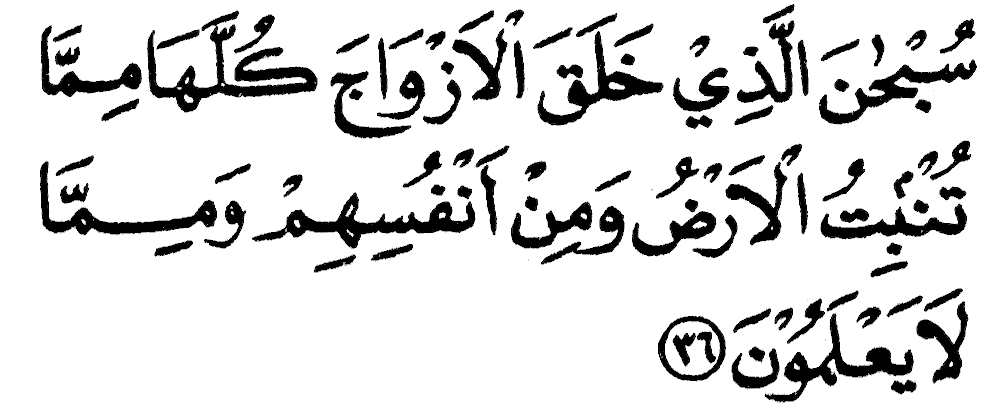 سُبْحٰنَ الَّذِيْ خَلَقَ الْاَزْوَاجَ كُلَّهَا مِمَّا
تُنْۢبِتُ الْاَرْضُ وَمِنْ اَنْفُسِهِمْ وَمِمَّا
لَا يَعْلَمُوْنَ ٣٦